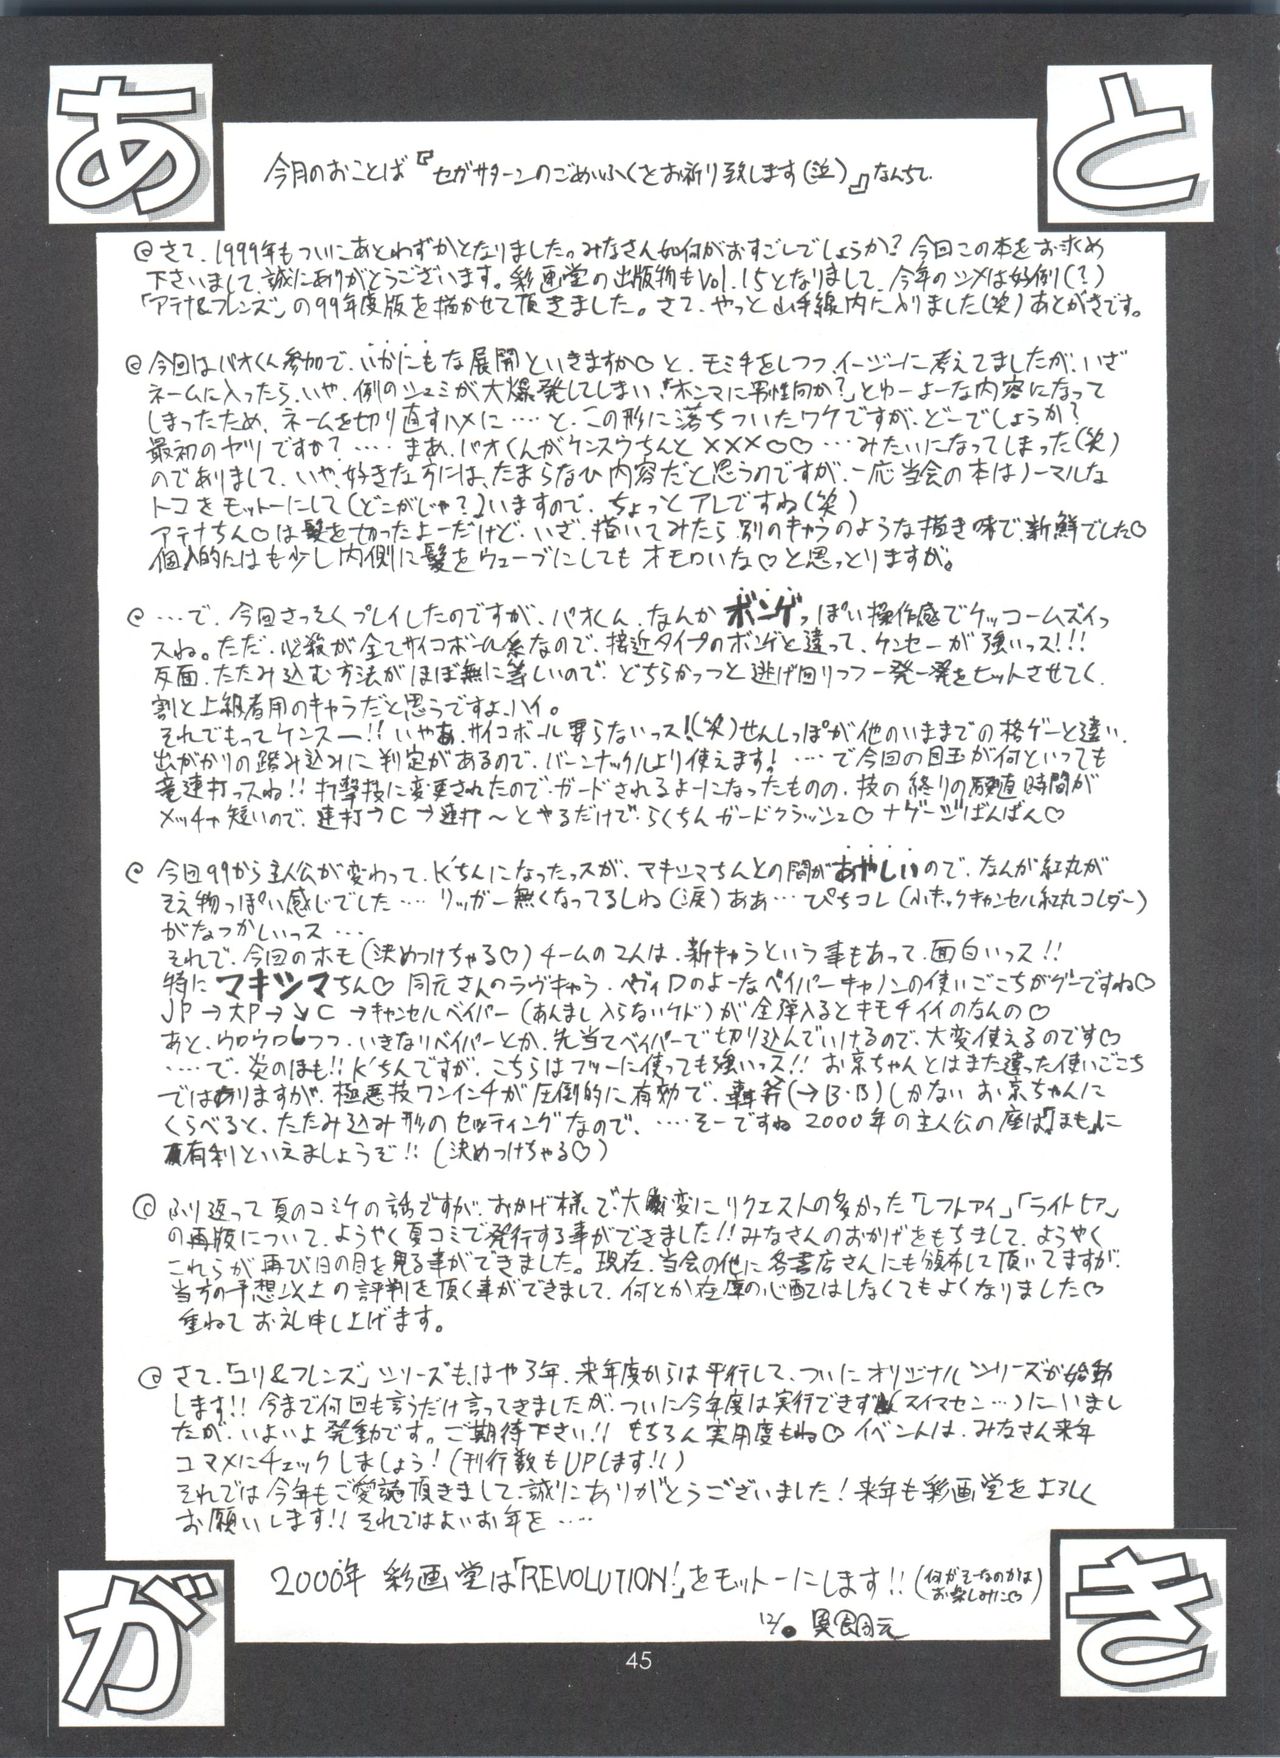 あ
と
今月のおことば『セガサターンのごめいふくをお祈り致します(泣)』なんちて。
@さて、1999年もついにあとわずかとなりました。みなさん如何がおすごしでしょうか？ 今回この本をお求め
下さいまして、誠にありがとうございます。彩画堂の出版物もVol.15となりまして、今年のシメは好例(？)
「アテナ&フレンズ」の99年度版を描かせて頂きました。さて、やっと山手線内に入りました(笑)あとがきです。
@今回はバオくん参加で、いかにもな展開といきますか♡と、モミ手をしつつイージーに考えてましたが、いざ
ネームに入ったら、いや、例のシュミが大爆発してしまい「ホンマに男性向か？」とゆーよーな内容になって
しまったため、ネームを切り直すハメに‥‥と、この形に落ちついたワケですが、どーでしょうか？
最初のヤツですか？‥‥まあ、バオくんがケンスウちんと×××♡♡…みたいになってしまった(笑)
のでありまして、いや、好きな方には、たまらなひ内容だと思うのですが、一応当会の本はノーマルな
トコをモットーにして(どこがじゃ？)いますので、ちょっとアレですね(笑)
アテナちん♡は髪を切ったよーだけど、いざ、描いてみたら別のキャラのような描き味で、新鮮でした♡
個人的にはも少し内側に髪をウェーブにしてもオモロいな♡と思っとりますが。
@…で、今回さっそくプレイしたのですが、バオくん、なんかボンゲっぽい操作感でケッコームズイっ
スね。ただ、必殺が全てサイコボール系なので、接近タイプのボンゲと違って、ケンセーが強いっス!!!
反面、たたみ込む方法がほぼ無に等しいので、どちらかっつと逃げ回りつつ一発一発をヒットさせてく、
割と上級者用のキャラだと思うですよ、ハイ。
それでもってケンスー!! いやあ、サイコボール要らないっス!(笑)せんしっぽが他のいままでの格ゲーと違い、
出がかりの踏み込みに判定があるので、バーンナックルより使えます! ‥‥で今回の目玉が何といっても
竜連打っスね!! 打撃技に変更されたので、ガードされるよーになったものの、技の終りの硬直時間が
メッチャ短いので、連打→C→連打～とやるだけで、らくちんガードクラッシュ♡ナゲージばんばん♡
@今回99から主人公が変わって、K'ちんになったっスが、マキシマちんとの間があやしいので、なんか紅丸が
そえ物っぽい感じでした‥‥リッガー無くなってるしね(涙)ああ…ぴちコレ(小キックキャンセル紅丸コレダー)
がなつかしいっス…
それで、今回のホモ(決めつけちゃる♡)チームの2人は、新キャラという事もあって、面白いっス!!
特にマキシマちん♡同元さんのラヴキャラ・ヘヴィDのよーなベイパーキャノンの使いごこちがグーですね♡
JP→大P→↘C→キャンセルベイパー(あんまし入らないケド)が全弾入るとキモチイイのなんの♡
あと、ウロウロしつつ、いきなりベイパーとか、先当てベイパーで切り込んでいけるので、大変使えるのです♡
‥‥で、炎のほも!! K'ちんですが、こちらはフツーに使っても強いっス!! お京ちゃんとはまた違った使いごこち
ではありますが、極悪技ワンインチが圧倒的に有効で、轟斧(→B・B)しかない お京ちゃんに
くらべると、たたみ込み形のセッティングなので、‥‥そーですね 2000年の主人公の座は『ほも』に
有利といえましょうぞ!!(決めつけちゃる♡)
@ふり返って夏のコミケの話ですが、おかげ様で、大変にリクエストの多かった「レフトアイ」「ライトヒア」
の再販について、ようやく夏コミで発行する事ができました!! みなさんのおかげをもちまして、ようやく
これらが再び日の目を見る事ができました。現在、当会の他に各書店さんにも頒布して頂いてますが、
当方の予想以上の評判を頂く事ができまして、何とか在庫の心配はしなくてもよくなりました♡
重ねてお礼申し上げます。
@さて、「ユリ&フレンズ」シリーズも、はや3年、来年度からは平行して、ついにオリジナルシリーズが始動
します!! 今まで何回も言うだけ言ってきましたが、ついに今年度は実行できず(スイマセン…)にいまし
たが、いよいよ発動です。ご期待下さい!! もちろん実用度もね♡イベントは、みなさん来年
コマメにチェックしましょう!(刊行数もUPします!!)
それでは今年もご愛読頂きまして、誠にありがとうございました! 来年も彩画堂をよろしく
お願いします!! それではよいお年を‥‥
2000年 彩画堂は「REVOLUTION!」をモットーにします!!(何がそーなのかは
お楽しみに♡)
12/。異国同元
が
き
45